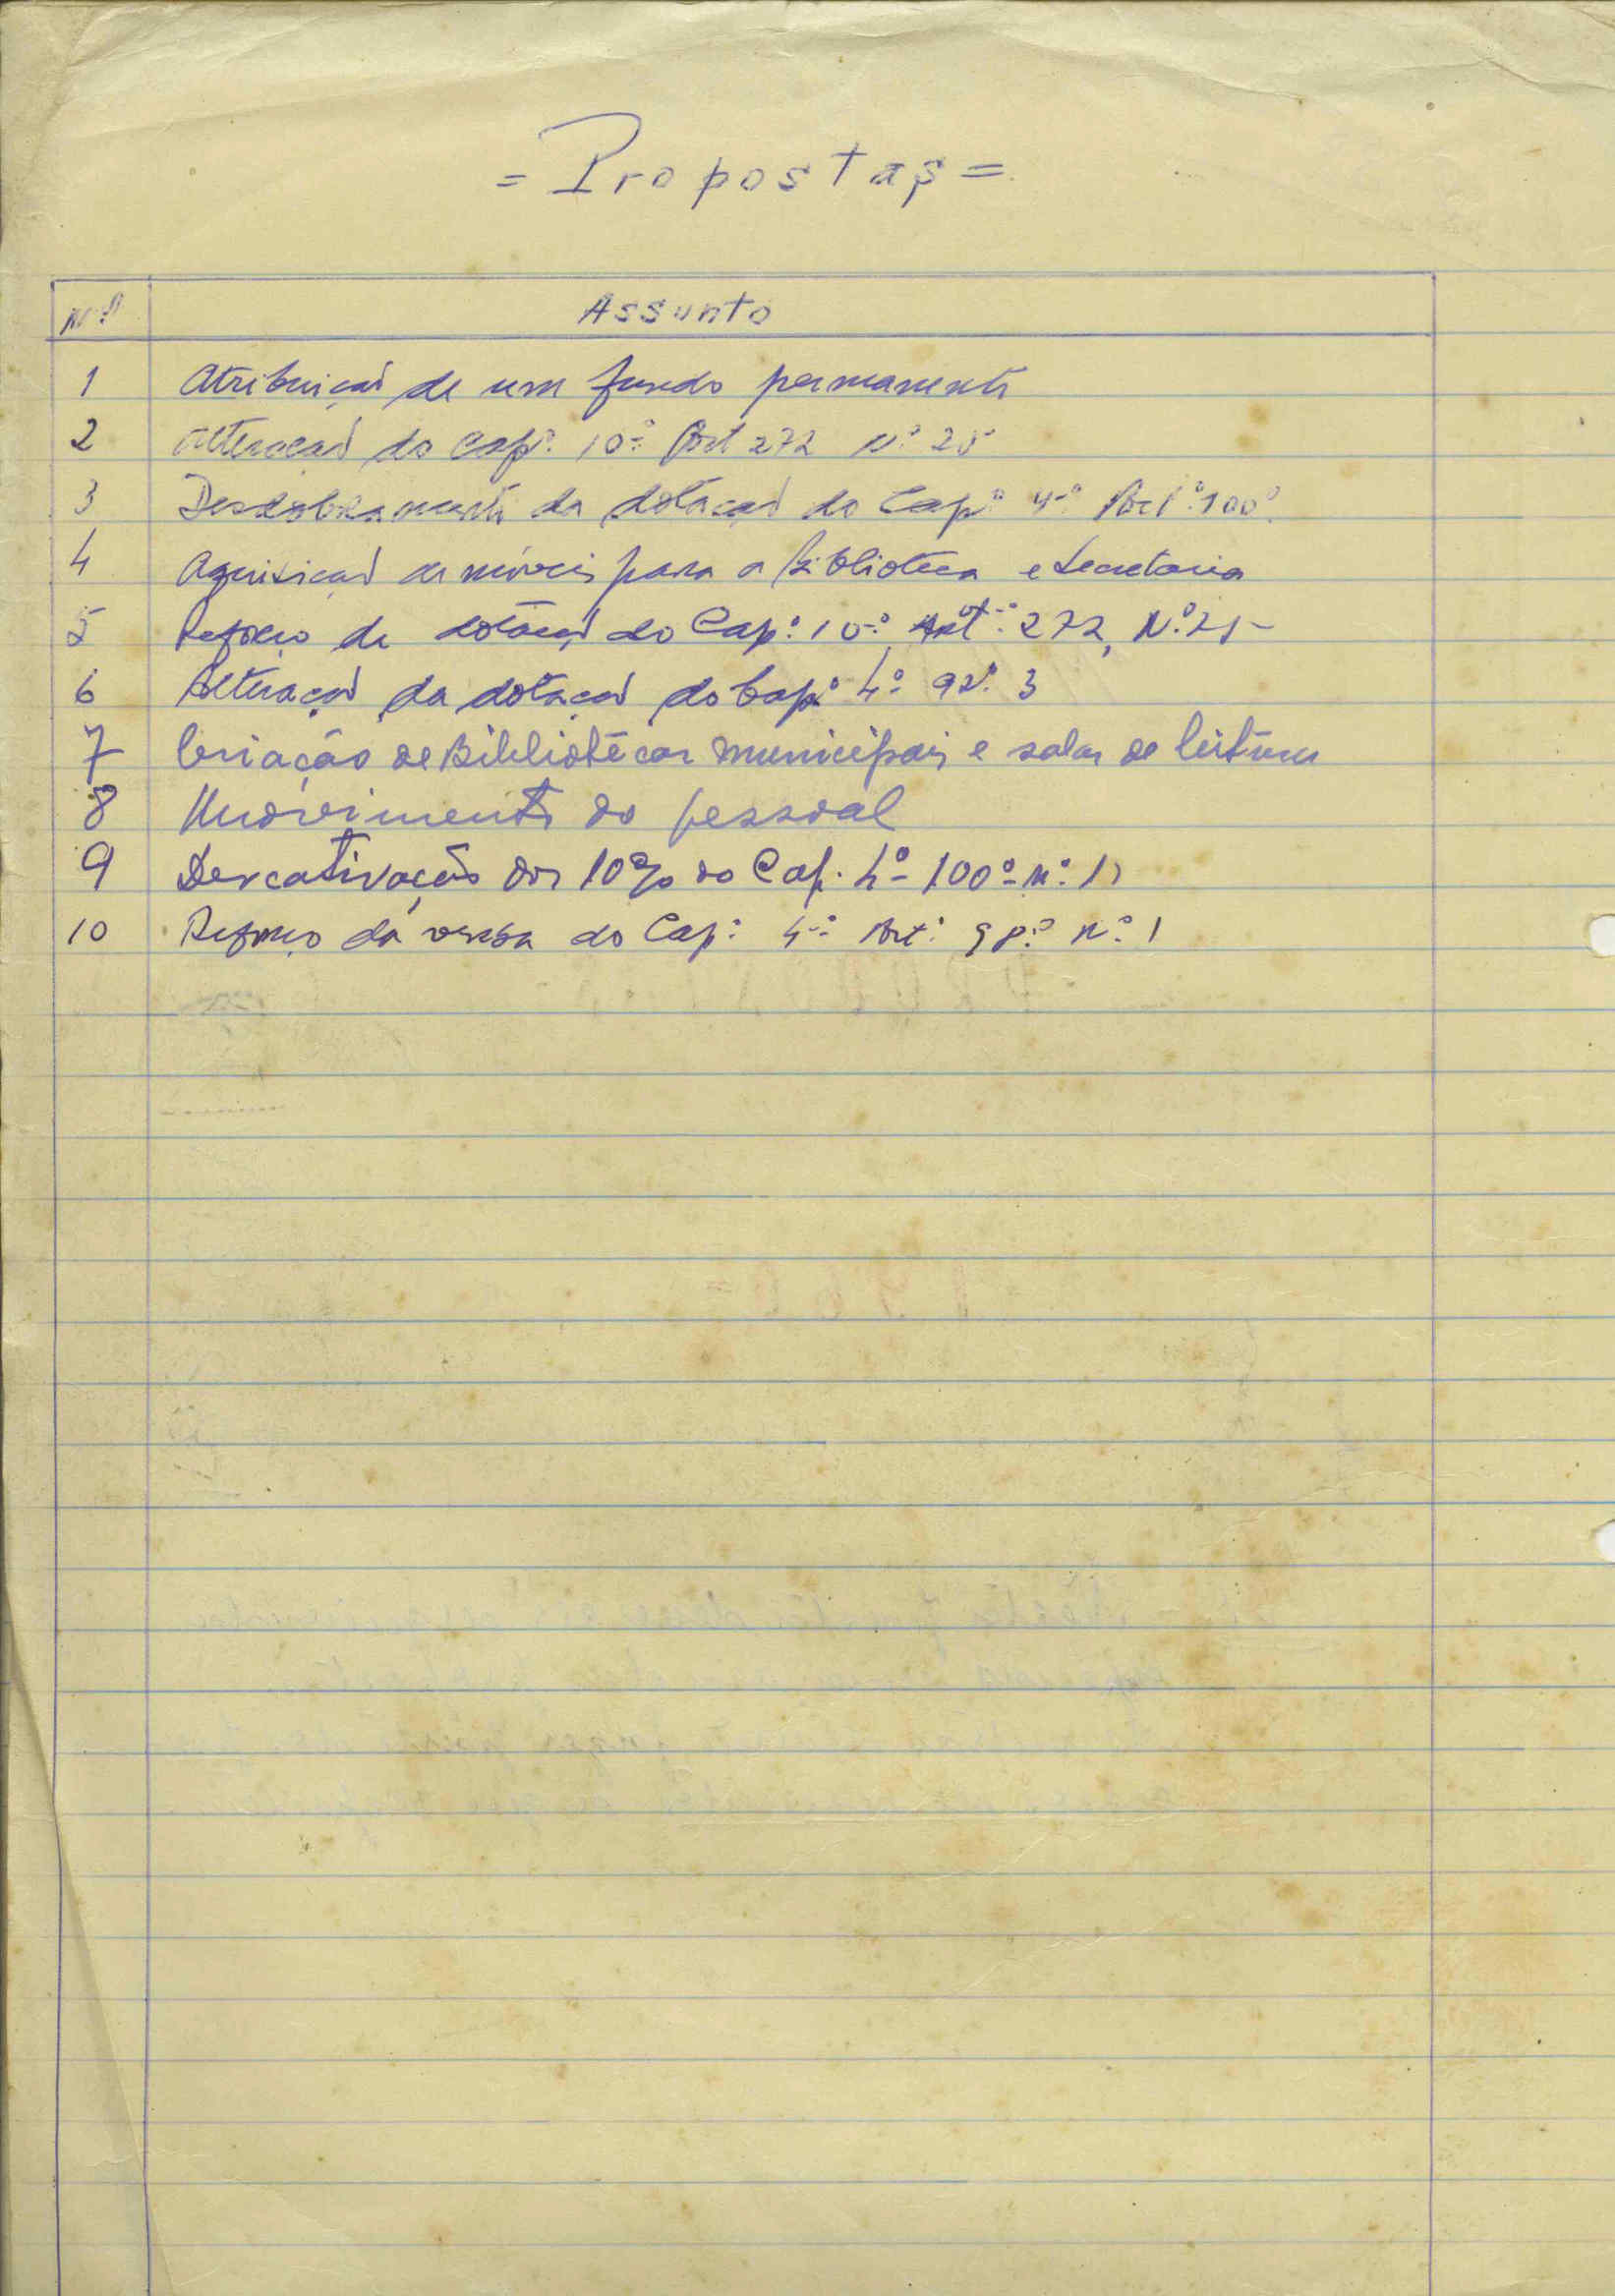 = Propostas =
Nº Assunto
1 Atribuição de um fundo permanente
2 Alteração do Capº. 10º Art 272 Nº 25
3 Desdobramento da dotação do Capº 4º Artº 100º.
4 Aquisição de móveis para a Biblioteca e Secretaria
5 Reforço da dotação do Capº. 10º, Artº. 272, Nº. 25
6 Alteração da dotação do Capº 4º 92º. 3
7 Criação de Bibliotécas municipais e salas de leitura
8 Movimento do pessoal
9 Descativação dos 10% do Cap. 4º 100º nº.
10 Reforço da verba do Capº 4º Artº 98º nº 1